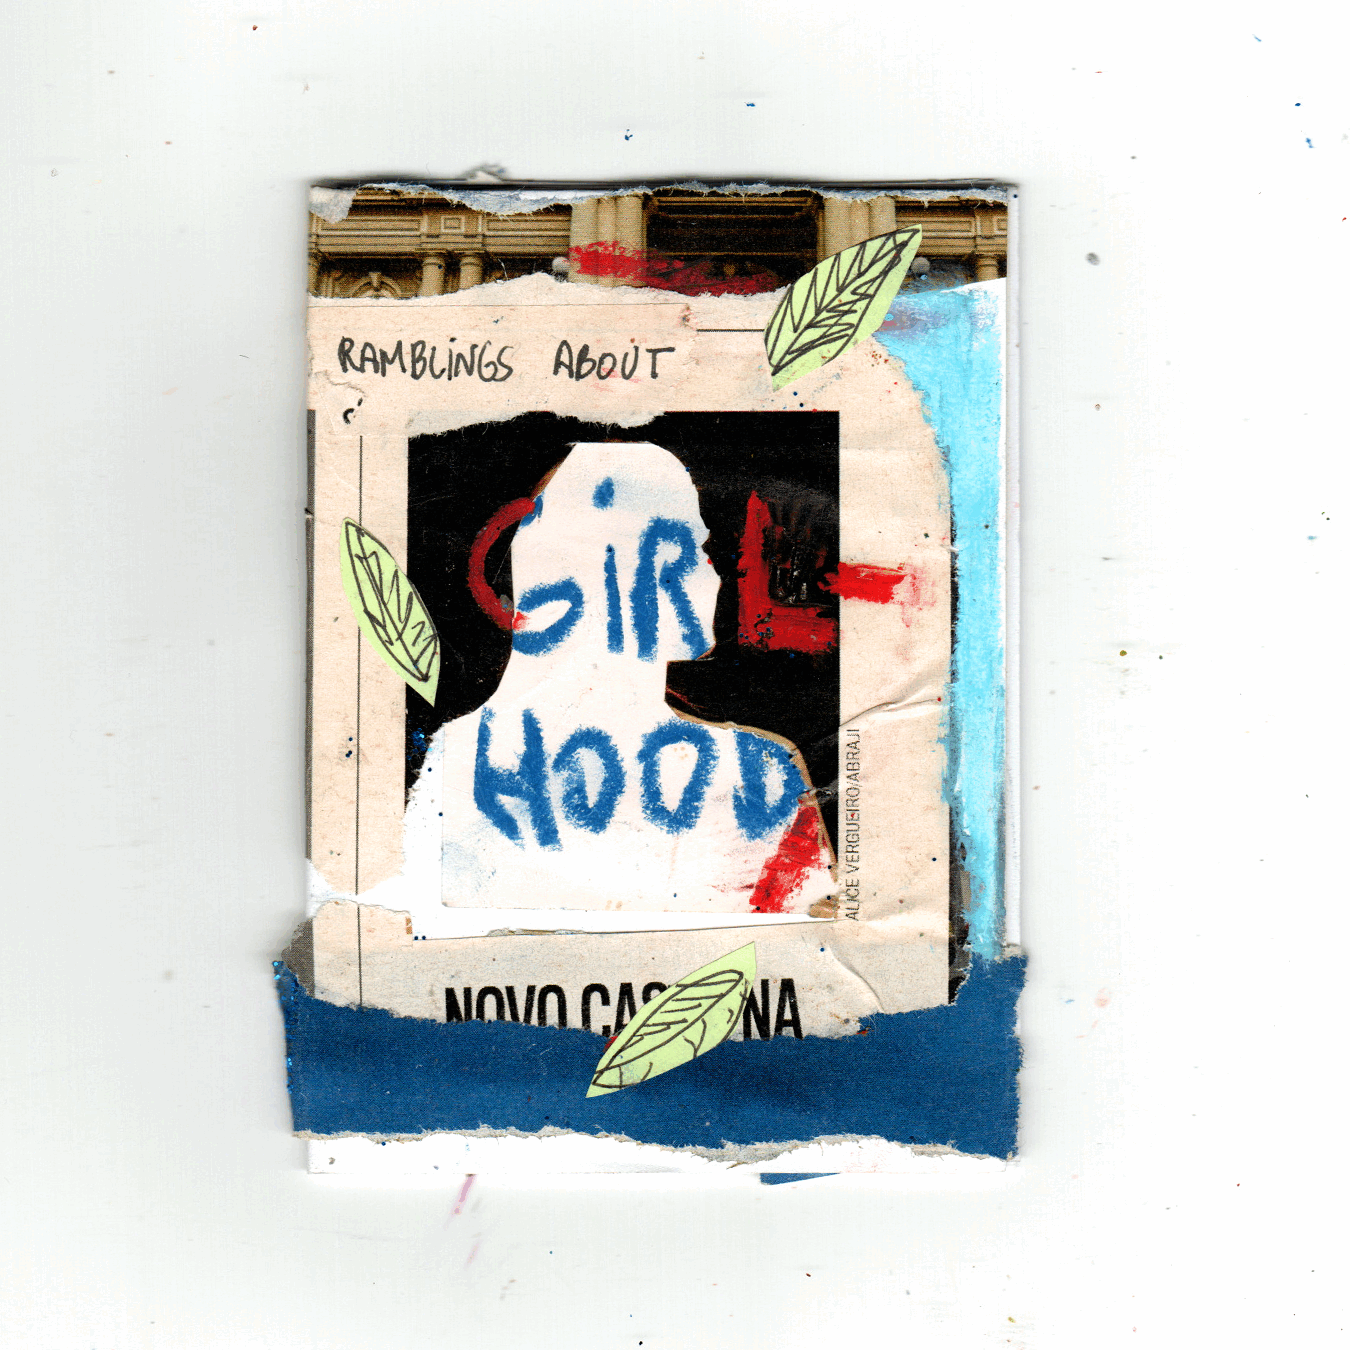 RAMBLiNGS ABOUT
GiRL
HOOD
ALICE VERGUEIRO/ABRAJI
NOVO